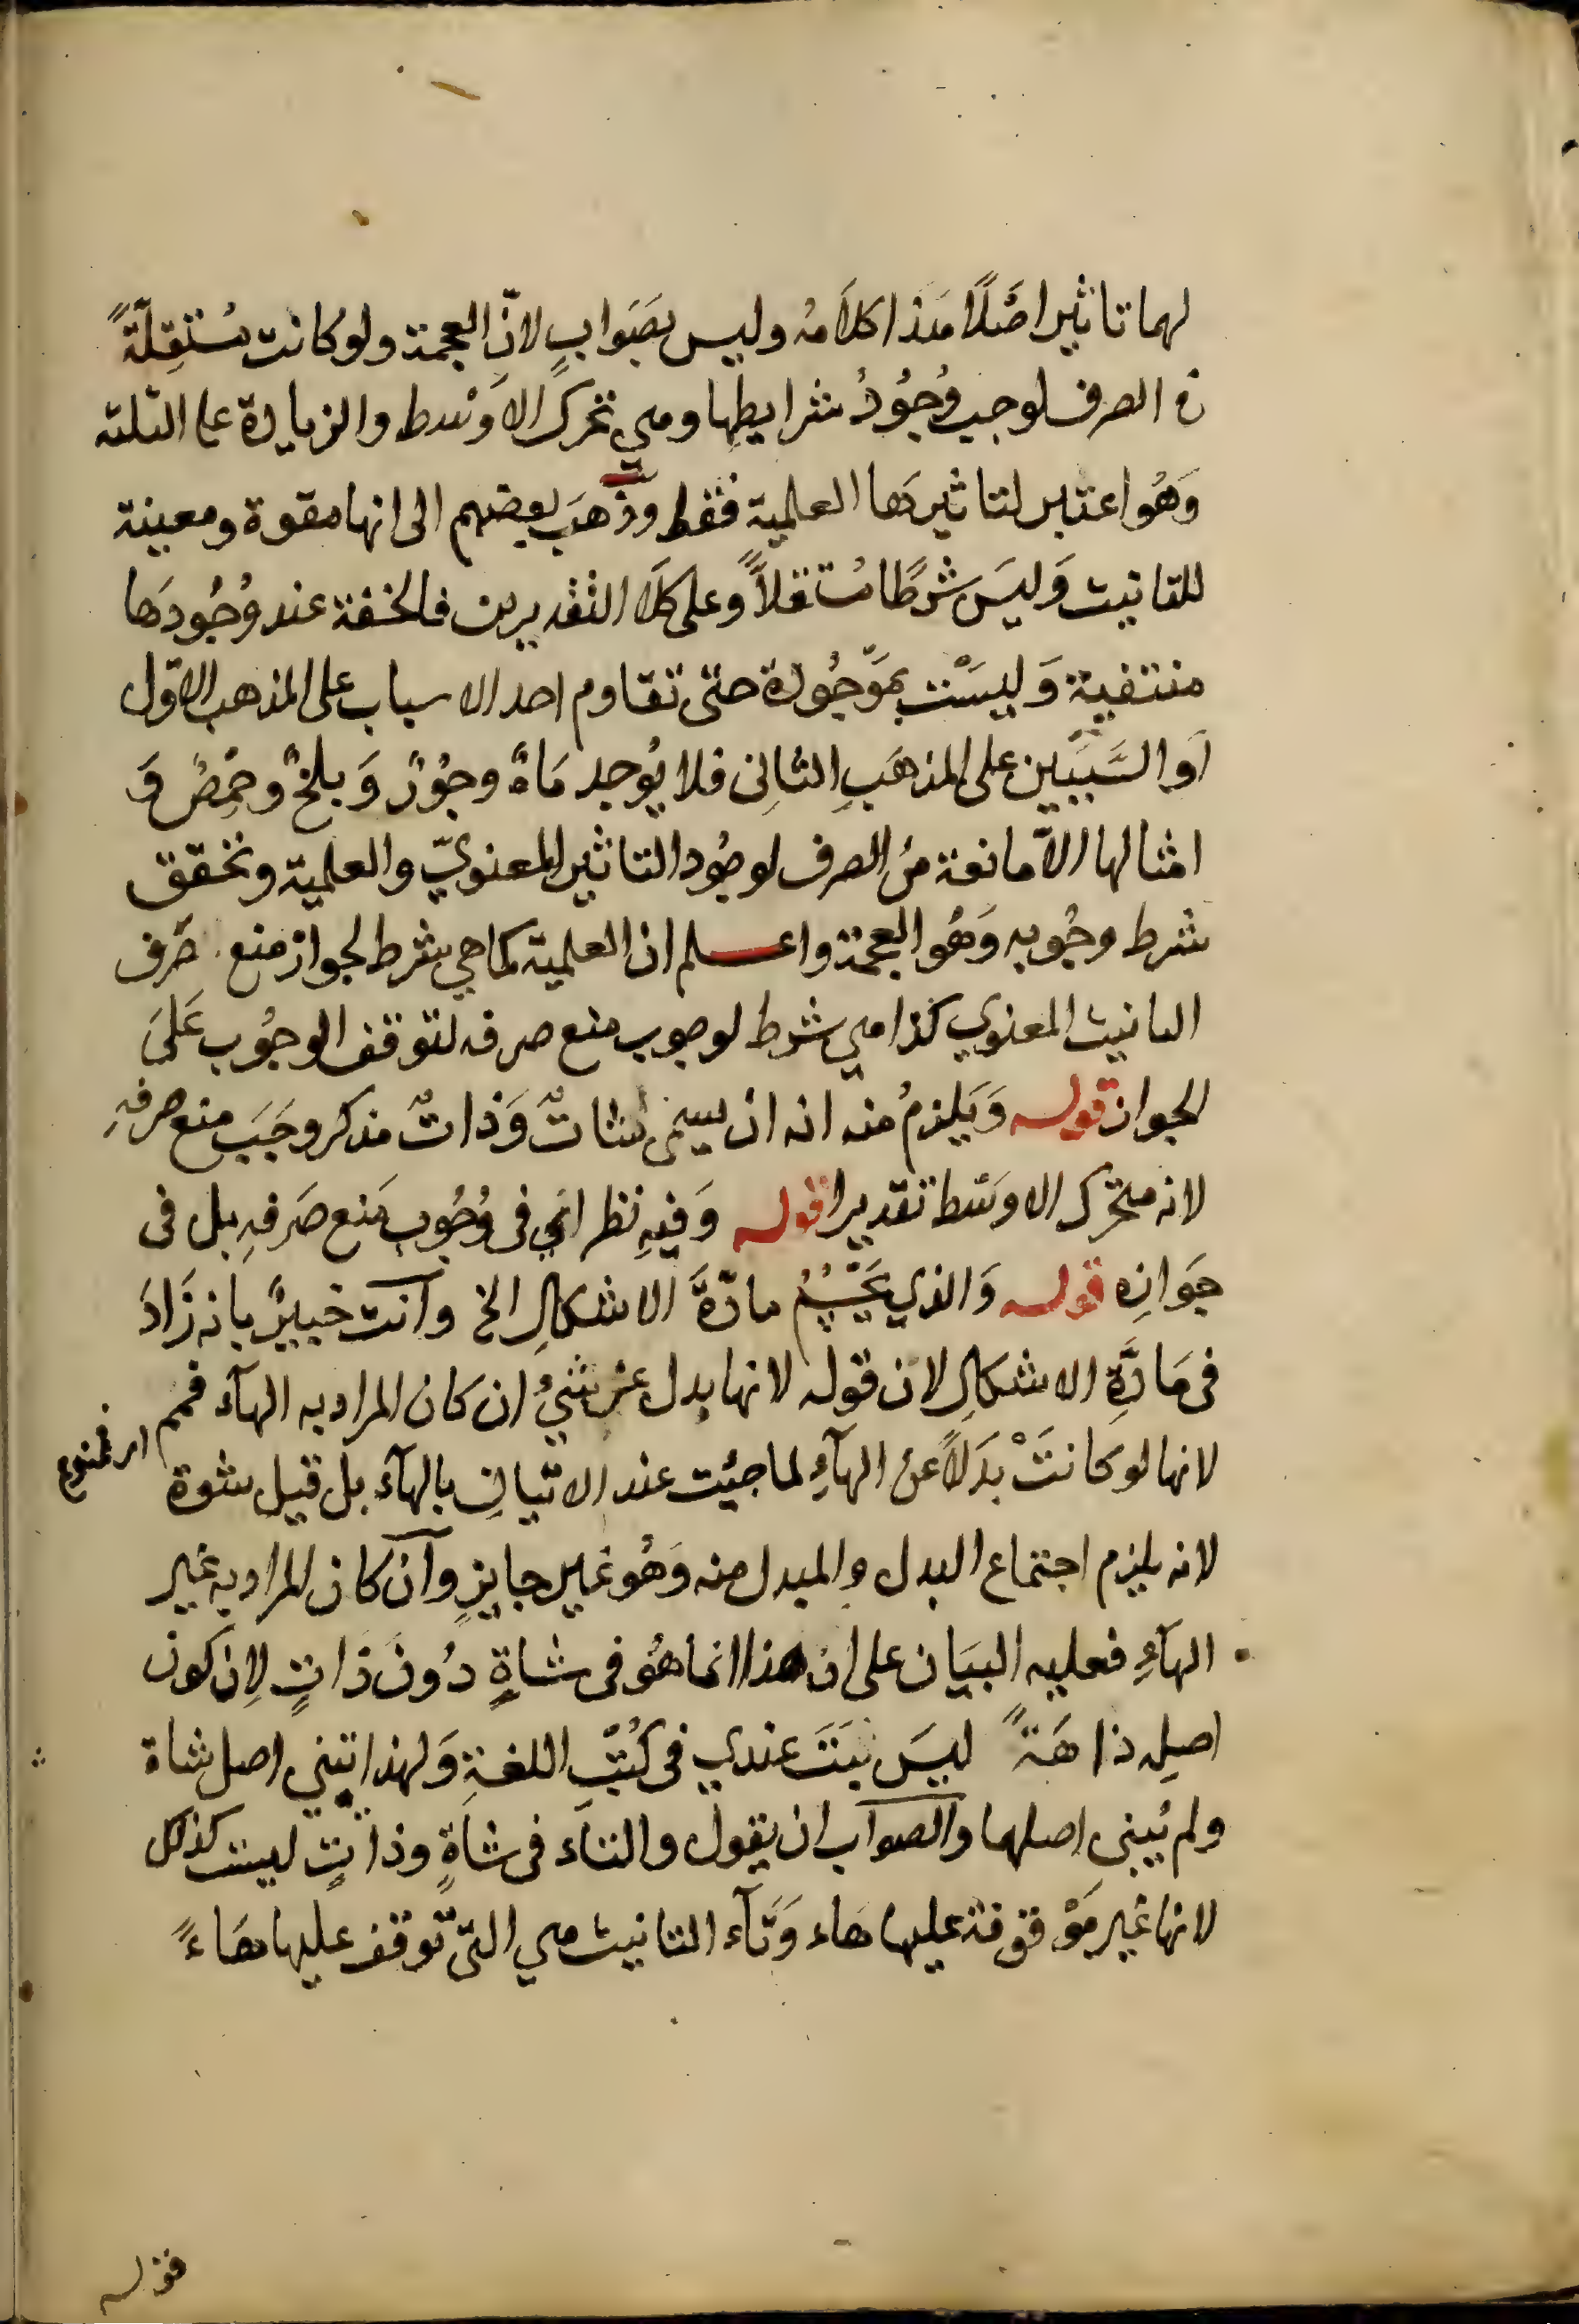 لهما تاثير اصَلًا هَذا كلاَمُه وليس بصَوابٍ لانّ العجمة ولو كانت مُسْتَقِلَّةً
في الصرف لوجب وُجُودُ شرايطِها وهي تحرك الاَوْسط والزيادة على الثلثه
وَهُو اعتبر لتاثيرهَا العلمية فقط وذَهَبَ بعضهم الى انها مقوة ومعينة
للتانيث وَليسَ شرطًا مستقلاً وعلى كلَا التقديرين فالخفة عند وُجُودهَا
منتفية وَليسَتْ بمَوْجُودة حتى تقاوم احد الاسباب على المذهب الاوّل
اَو السَّبَبَين على المذهَبِ الثانِى فلا يُوجد مَاهُ وجُورُ وَ بلخُ وحِمْصُ وَ
امثالها الاّ مانعة منَ الصرف لوجُود التاثير المعنويّ والعلمية وتحقق
شرط وجُوبه وَهُو العجمة واعلم ان العلمية كما هي شرط لجواز منع صَرف
التانيث المعنوي كذا هي شرط لوجوب منع صرفه لتوقف الوجُوب عَلىَ
الجواز قوله وَيَلزمُ منه انه ان يسمى بشاتٌ وَذاتٌ مذكر وجَبَ منع صرفهِ
لانه متحرك الاوسَط تقديرا قوله وَفيهِ نظر اي فى وُجُوب مَنع صَرفهِ بل فى
جَوازِه قوله وَالذي يَحْسِمُ مادّةَ الاشكالِ الخ وانت خبيرٌ بانه زَادَ
فى مَادَّةِ الاشكالِ لان قوله لانها بدل عن شيءٍ ان كان المراد به الهآء فمم
اى فممنوع
لانها لو كانَتْ بدَلاً عن الهآءِ لما جيُت عند الاتيان بالهآء بل قيل شوة
لانه يلزم اجتماع البدل والمبدل منه وَهُو غير جايزٍ وان كان المراد به غير
الهآءِ فعليه البيَان على ان هذا انما هُو فى شاةٍ دُون ذاتٍ لان كون
اصلِه ذاهَةً ليسَ بثَبَت عندي فى كُتُبِ اللغةِ وَلهذا تبنى اصل شاة
ولم يُبنى اصلها والصواب ان يقول والتاء فى شاةٍ وذاتٍ ليست كذلك
لانها غير مَوْقوفة عليها هاء وَتَآء التانيث هي التى تُوقف عليها هَاءً
قوله